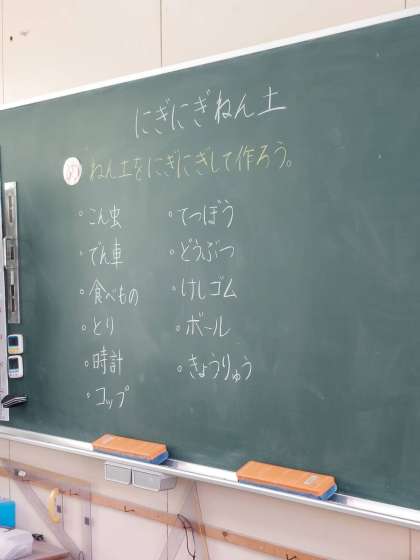 にぎにぎねん土
め ねん土をにぎにぎして作ろう。
・こん虫
・でん車
・食べもの
・とり
・時計
・コップ
・てつぼう
・どうぶつ
・けしゴム
・ボール
・きょうりゅう